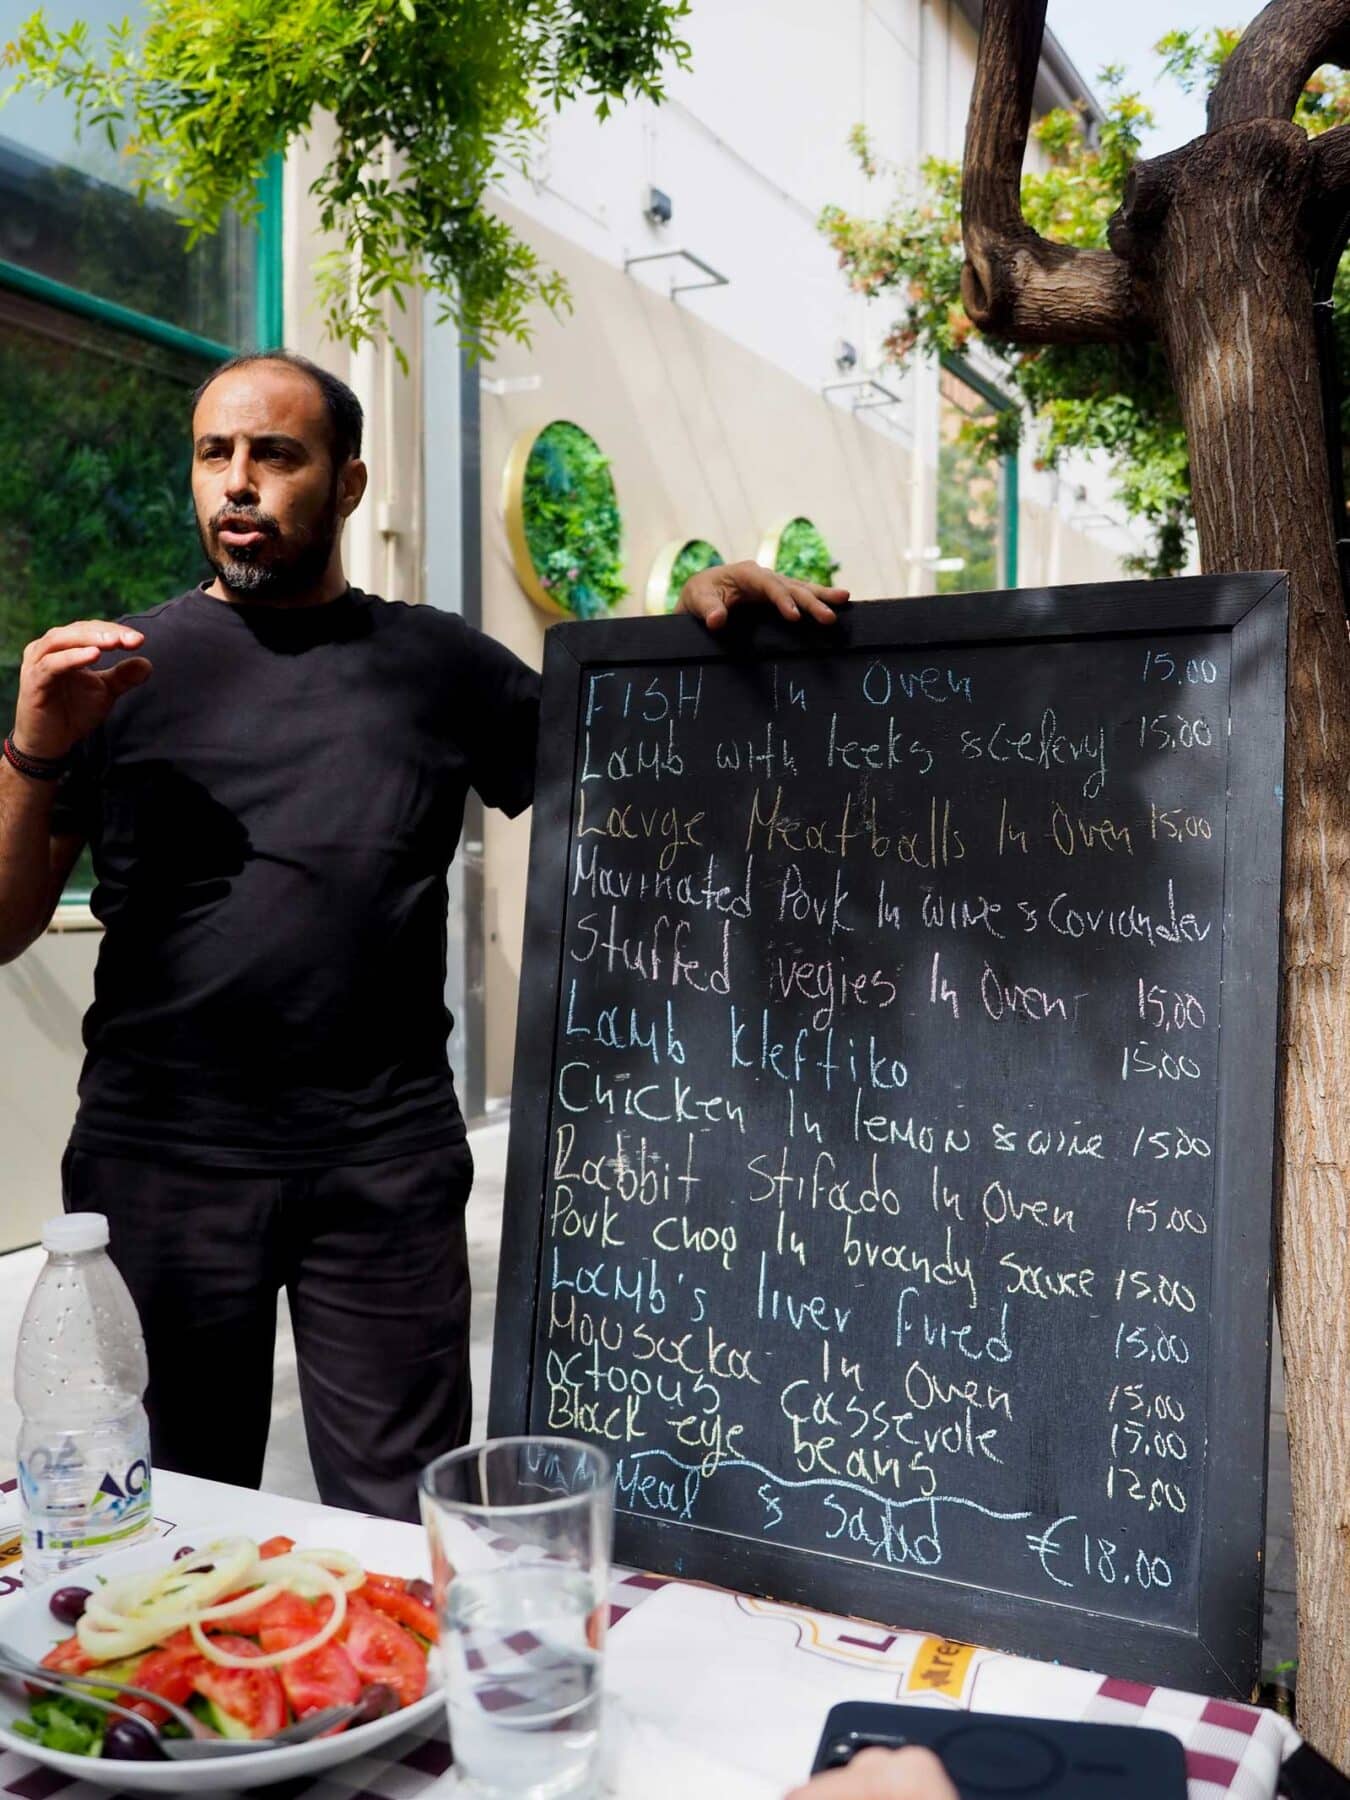 FISH In Oven 15.00
Lamb with leeks & celery 15,00
Large Meatballs In Oven 15,00
Marinated Pork In wine & Coriander
Stuffed vegies In Oven 15,00
Lamb kleftiko 15,00
Chicken In lemon & wine 15,00
Rabbit Stifado In Oven 15.00
Pork chop In brandy sauce 15.00
Lamb's liver fried 15,00
Mousocka In Oven 15,00
octopus casserole 15.00
Black eye beans 12,00
Meal & Salad €18.00